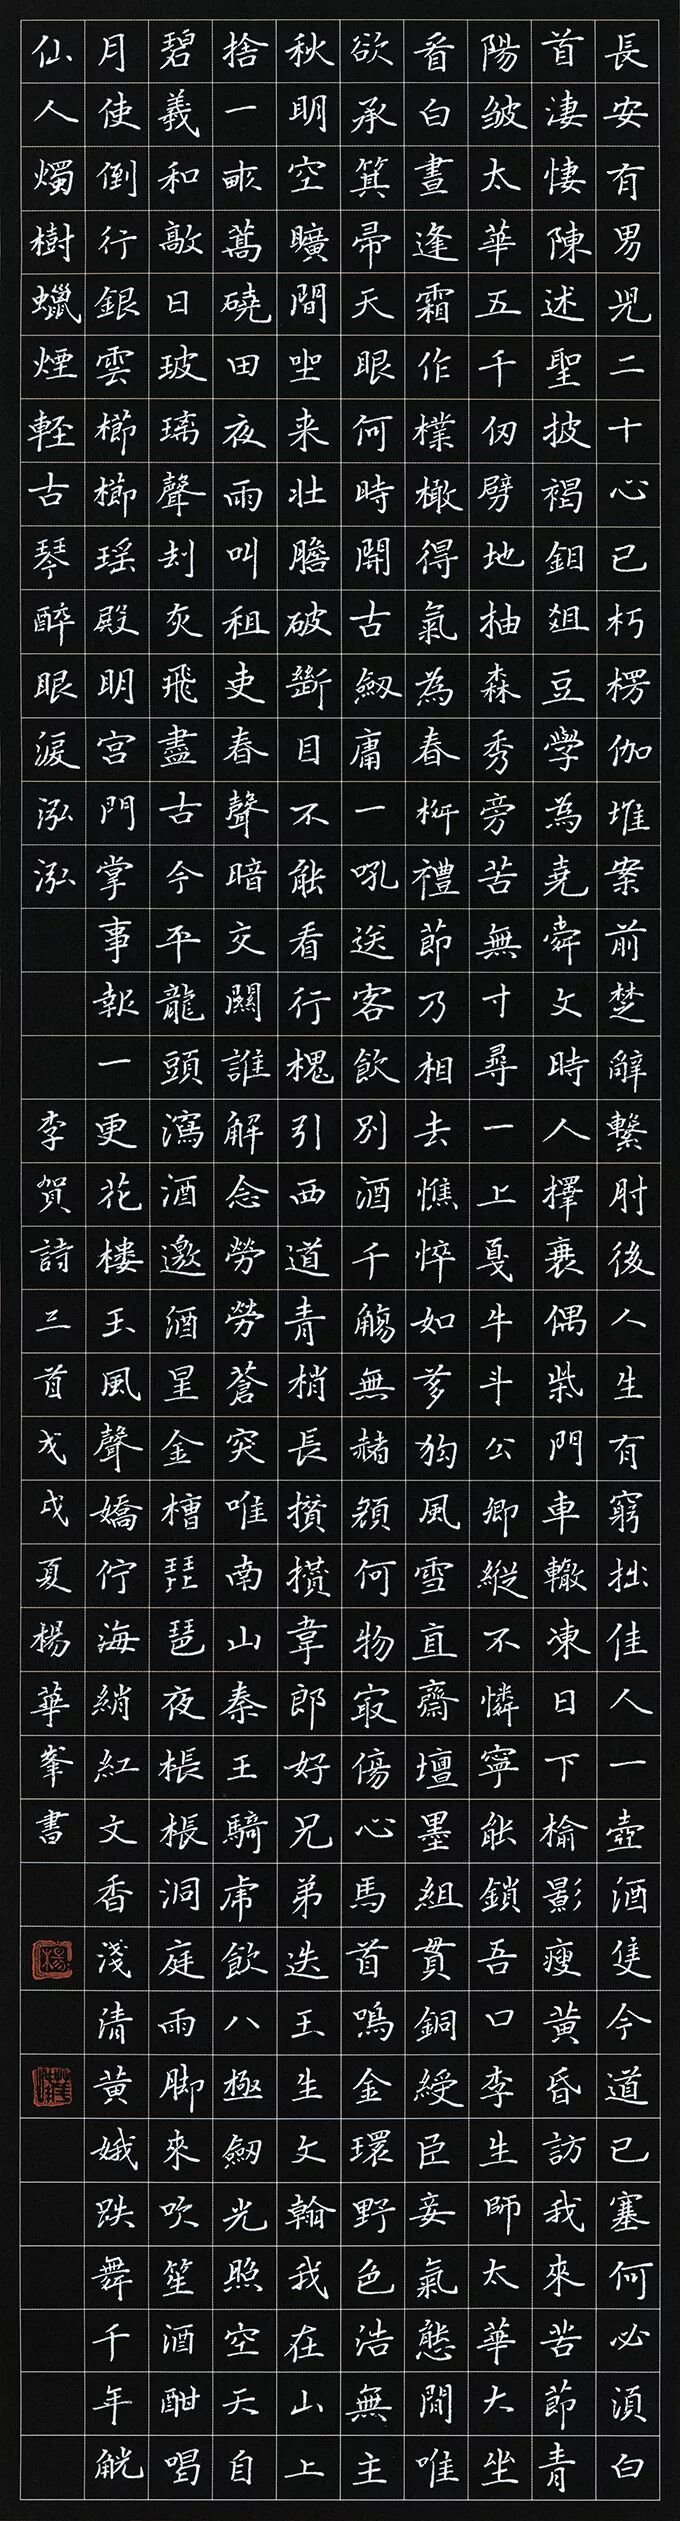 長安有男兒二十心已朽楞伽堆案前楚辭繫肘後人生有窮拙佳人一壺酒隻今道已塞何必須白
首淒悽陳述聖披褐鉏俎豆學為堯舜文時人擇衰偶柴門車轍凍日下榆影瘦黃昏訪我來苦節青
陽皴太華五千仞劈地抽森秀旁苦無寸尋一上戛牛斗公卿縱不憐寧能鎖吾口李生師太華大坐
看白晝逢霜作樸樕得氣為春柳禮節乃相去憔悴如芻狗風雪直齋壇墨組貫銅綬臣妾氣態間唯
欲承箕帚天眼何時開古劒庸一吼送客飲別酒千觴無赭顏何物㝡傷心馬首鳴金環野色浩無主
秋明空曠間坐来壯膽破斷目不能看行槐引西道青梢長攢攢韋郎好兄弟迭玉生文翰我在山上
捨一畝蒿磽田夜雨叫租吏春聲暗交關誰解念勞勞蒼突唯南山秦王騎虎飲八極劒光照空天自
碧義和敲日玻璃聲刦灰飛盡古今平龍頭瀉酒邀酒星金槽琵琶夜棖棖洞庭雨脚來吹笙酒酣喝
月使倒行銀雲櫛櫛瑤殿明宮門掌事報一更花樓玉風聲嬌佇海綃紅文香淺清黃娥跌舞千年觥
仙人燭樹蠟煙輕古琴醉眼淚泓泓 李賀詩三首戊戌夏楊華峯書
楊